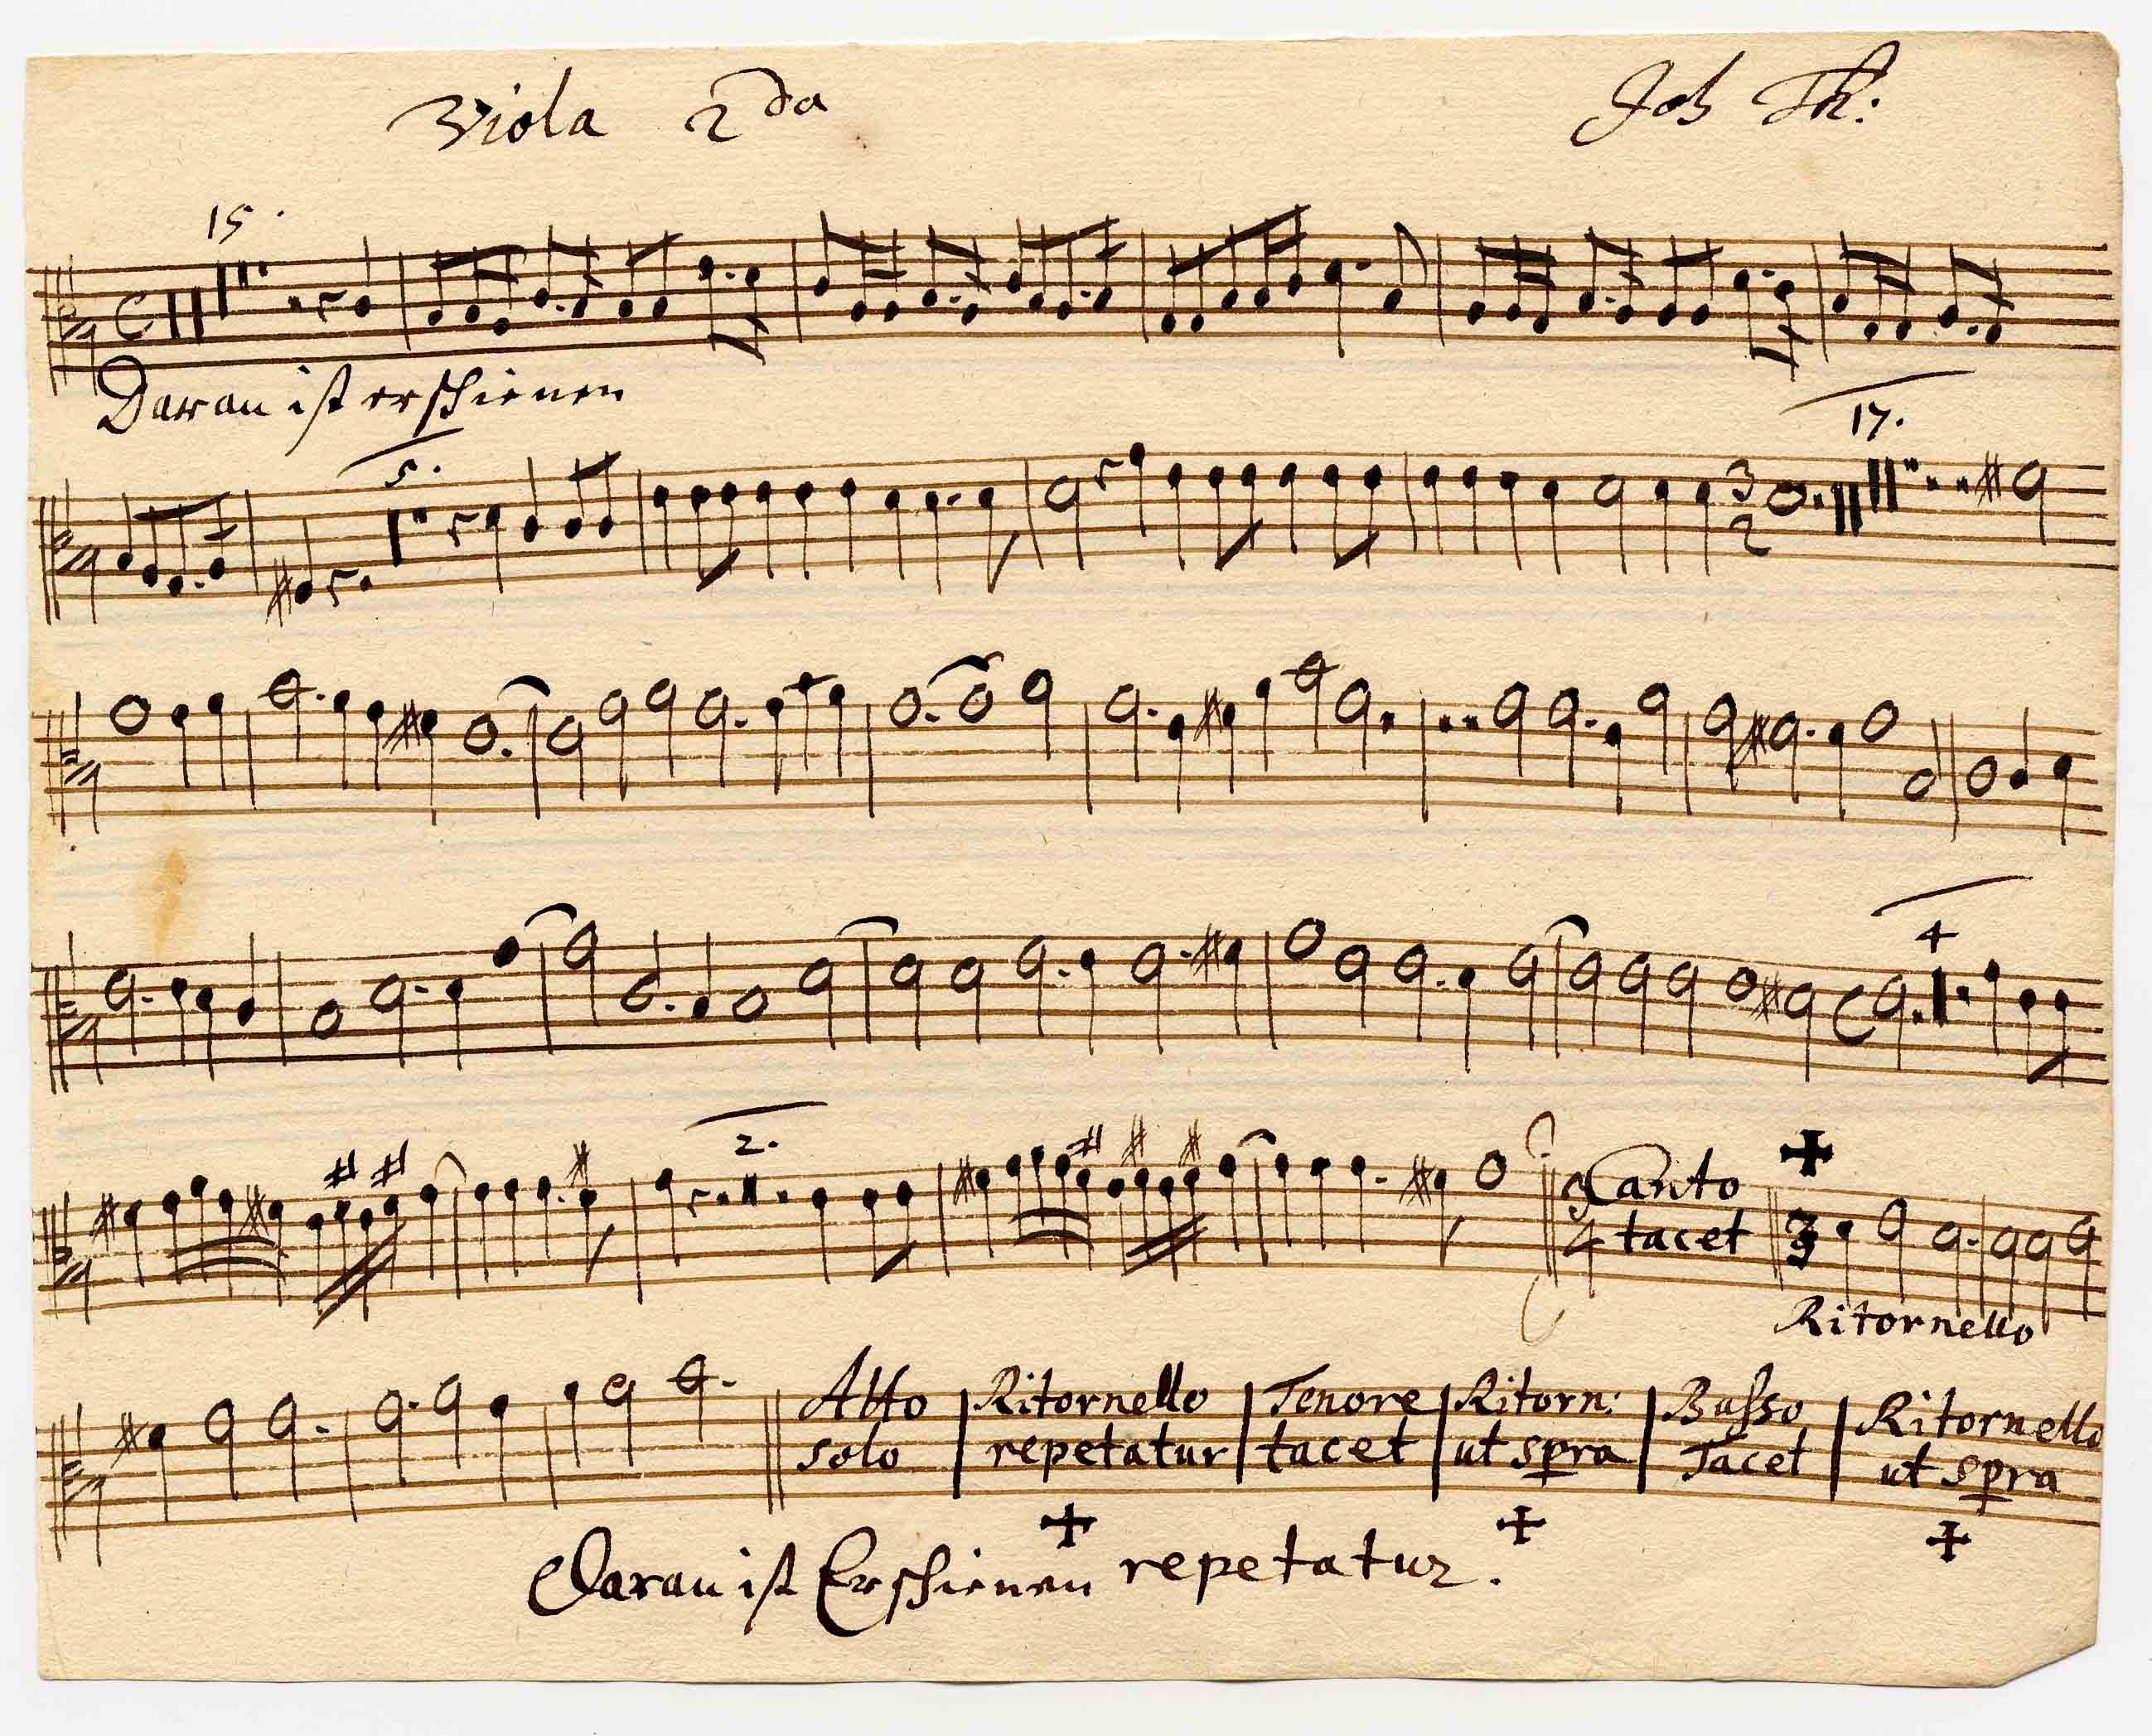 Viola 2da Joh Th:
15.
Daran ist erschienen
5. 17.
3
2
4
2.
Canto
4 tacet
3
Ritornello
Alto Ritornello Tenore Ritorn: Basso Ritornello
solo repetatur tacet ut spra Tacet ut spra
Daran ist Erschienen repetatur.